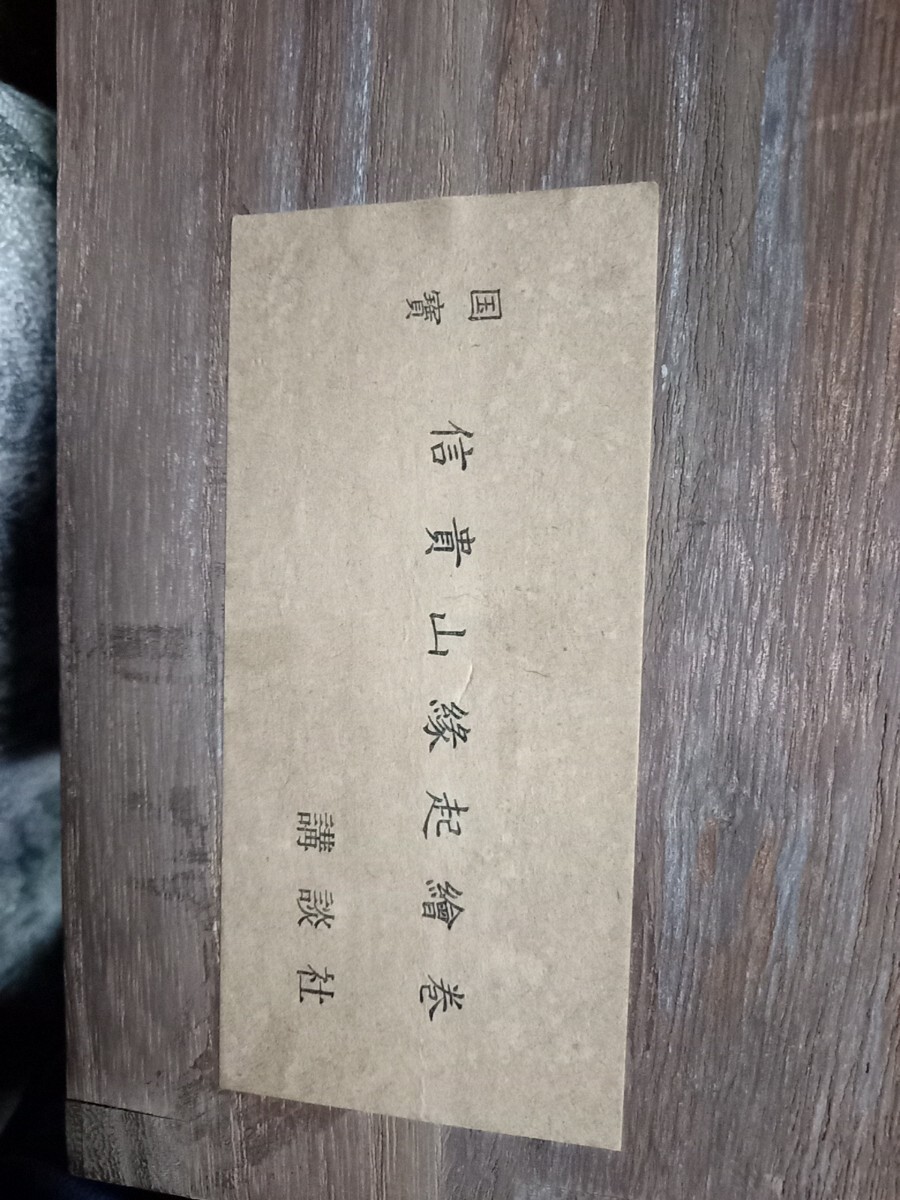 国寶
信貴山緣起繪卷
講談社